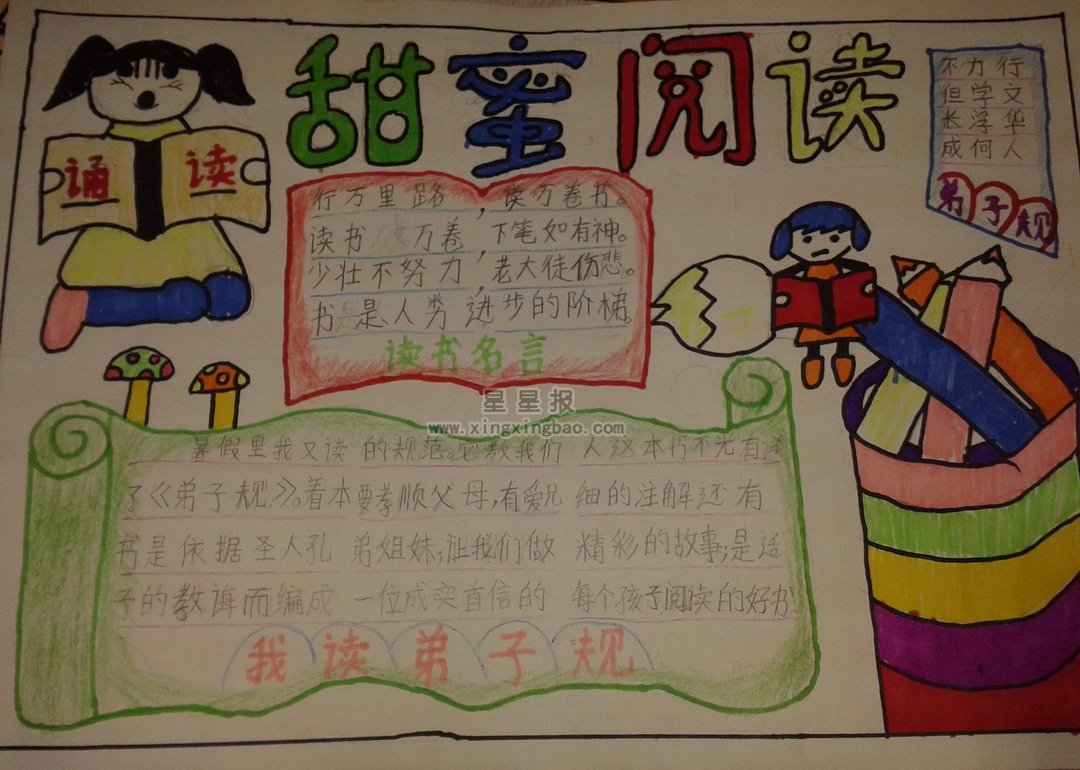 甜蜜阅读
诵读
不力行
但学文
长浮华
成何人
弟子规
行万里路，读万卷书。
读书 万卷，下笔如有神。
少壮不努力，老大徒伤悲。
书是人类进步的阶梯。
读书名言
星星报
www.xingxingbao.com
暑假里我又读
了《弟子规》。着本
书是依据圣人孔
子的教诲而编成
的规范。它教我们
要孝顺父母,有爱兄
弟姐妹;让我们做
一位成实首信的
人这本书不光有详
细的注解还有
精彩的故事;是适
每个孩子阅读的好书
我读弟子规